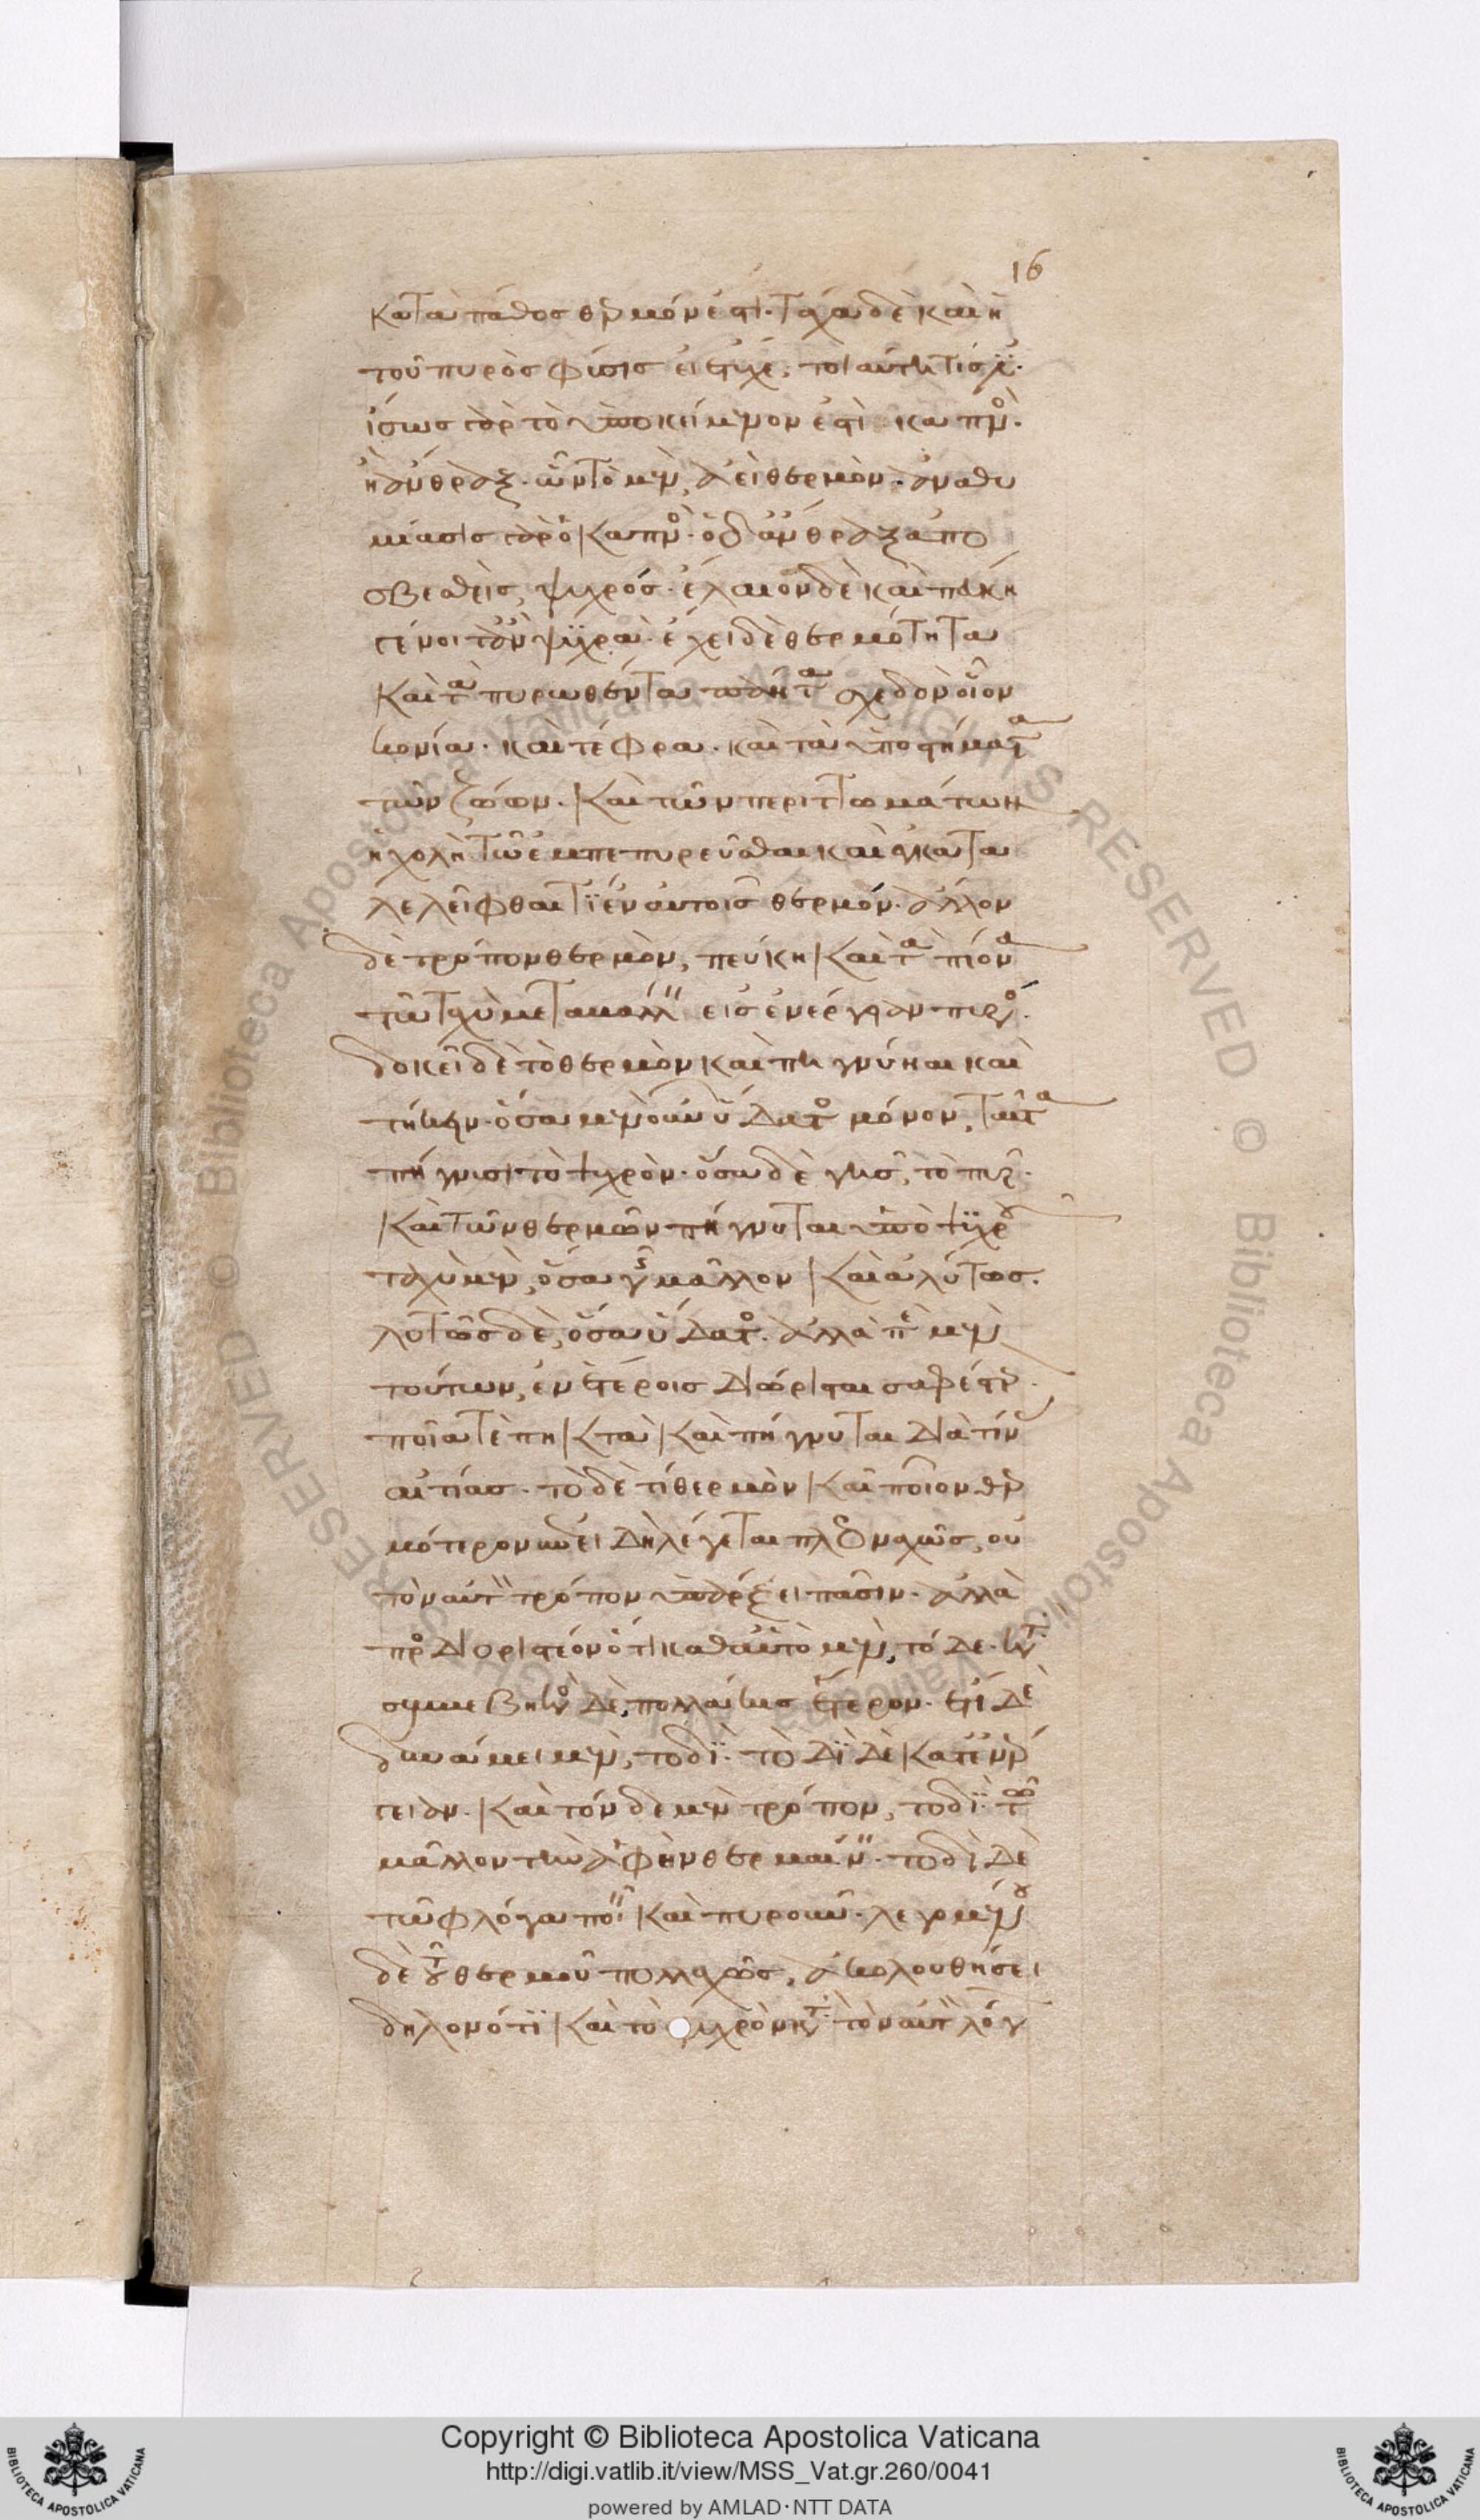 16
κατὰ πάθος θερμόν ἐστι· τάχα δὲ καὶ ἡ
τοῦ πυρὸς φύσις εἰ ἔτυχε, τοιαύτη τίς ἐστι·
ἴσως γὰρ τὸ ὑποκείμενον ἐστὶ καπνὸς·
ἢ ἄνθραξ· ὧν τὸ μὲν, ἀεὶ θερμὸν· ἀναθυ
μίασις γὰρ ὁ καπνὸς· ὁ δ' ἄνθραξ ἀπο
σβεσθεὶς, ψυχρός· ἔλαιον δὲ καὶ πεύκη
γένοιτ' ἂν ψυχρά· ἔχει δὲ θερμότητα
καὶ τὰ πυρωθέντα πάντα σχεδὸν οἷον
κονία· καὶ τέφρα· καὶ τὰ ὑποστήματα
τῶν ζώων· καὶ τῶν περιττωμάτων
ἡ χολὴ τῷ ἐμπεπυρεῦσθαι καὶ ἐγκατα
λελεῖφθαι τὶ ἐν αὐτοῖς θερμόν· ἄλλον
δὲ τρόπον θερμὸν, πεύκη καὶ τὰ πίονα
τῷ ταχὺ μεταβάλλειν εἰς ἐνέργειαν πυρός·
δοκεῖ δὲ τὸ θερμὸν καὶ πηγνύναι καὶ
τήκειν· ὅσα μὲν οὖν ὕδατος μόνον, ταῦτα
πήγνυσι τὸ ψυχρὸν· ὅσα δὲ γῆς, τὸ πῦρ·
καὶ τῶν θερμῶν πήγνυται ὑπὸ ψυχροῦ
ταχὺ μὲν, ὅσα γῆς μᾶλλον καὶ ἀλύτως·
λυτῶς δὲ, ὅσα ὕδατος· ἀλλὰ περὶ μὲν
τούτων, ἐν ἑτέροις διώρισται σαφέστερον·
ποῖα τὲ πηκτὰ καὶ πήγνυται διὰ τίνας
αἰτίας· τὸ δὲ τί θερμὸν καὶ ποῖον θερ
μότερον ἐπειδὴ λέγεται πλεοναχῶς, οὐ
τὸν αὐτὸν τρόπον ὑπάρξει πᾶσιν· ἀλλὰ
προσδιοριστέον ὅτι καθ' αὑτὸ μὲν, τόδε· κατὰ
συμβεβηκὸς δὲ, πολλάκις ἕτερον· ἔτι δὲ
δυνάμει μὲν, τοδὶ· τὸ δὶ δὲ κατ' ἐνέρ
γειαν· καὶ τόνδε μὲν τρόπον, τοδὶ τῷ
μᾶλλον τὴν ἁφὴν θερμαίνειν· τοδὶ δὲ
τῷ φλόγα ποιεῖν καὶ πυροῦν· λεγομένου
δὲ τοῦ θερμοῦ πολλαχῶς, ἀκολουθήσει
δηλονότι καὶ τὸ ψυχρὸν κατὰ τὸν αὐτὸν λόγον
Copyright © Biblioteca Apostolica Vaticana
http://digi.vatlib.it/view/MSS_Vat.gr.260/0041
powered by AMLAD·NTT DATA